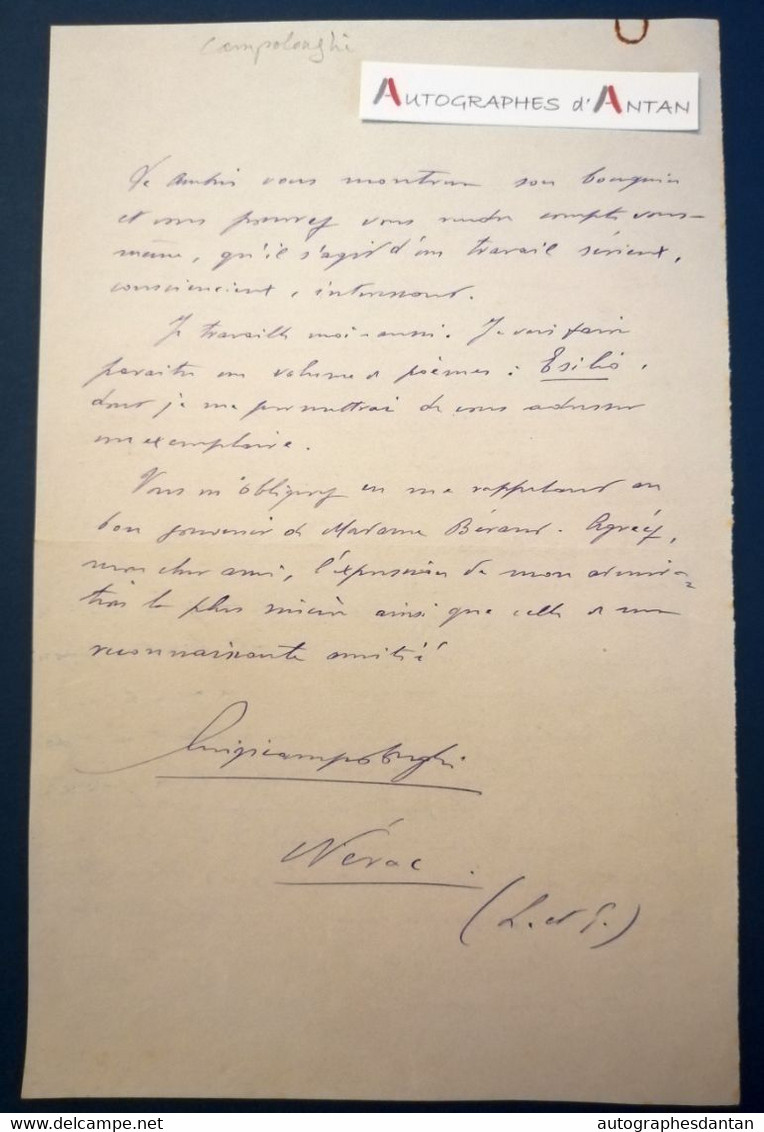 Campolonghi
AUTOGRAPHES d'ANTAN
vous montrera son bouquin
et vous pourrez vous rendre compte vous-
même, qu'il s'agit d'un travail sérieux,
consciencieux, intéressant.
Je travaille moi-aussi. Je vais faire
paraître un volume de poèmes : Esilio,
dont je me permettrai de vous adresser
un exemplaire.
Vous m'obligerez en me rappelant au
bon souvenir de Madame Béraud. Agréez,
mon cher ami, l'expression de mon admira-
tion la plus sincère ainsi que celle de ma
reconnaissante amitié
Luigi Campolonghi
Nérac.
(L. et G.)
www.delcampe.net
autographesdantan